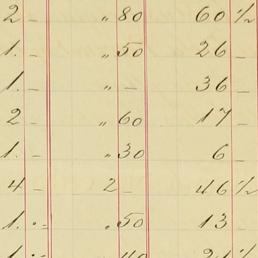 2 " 80 60 1/2
1. - " 50 26 -
1. - " - 36 -
2 " 60 17 -
1. - " 30 6 -
4 - 2 - 46 1/2
1. " 50 13 -
1. 40